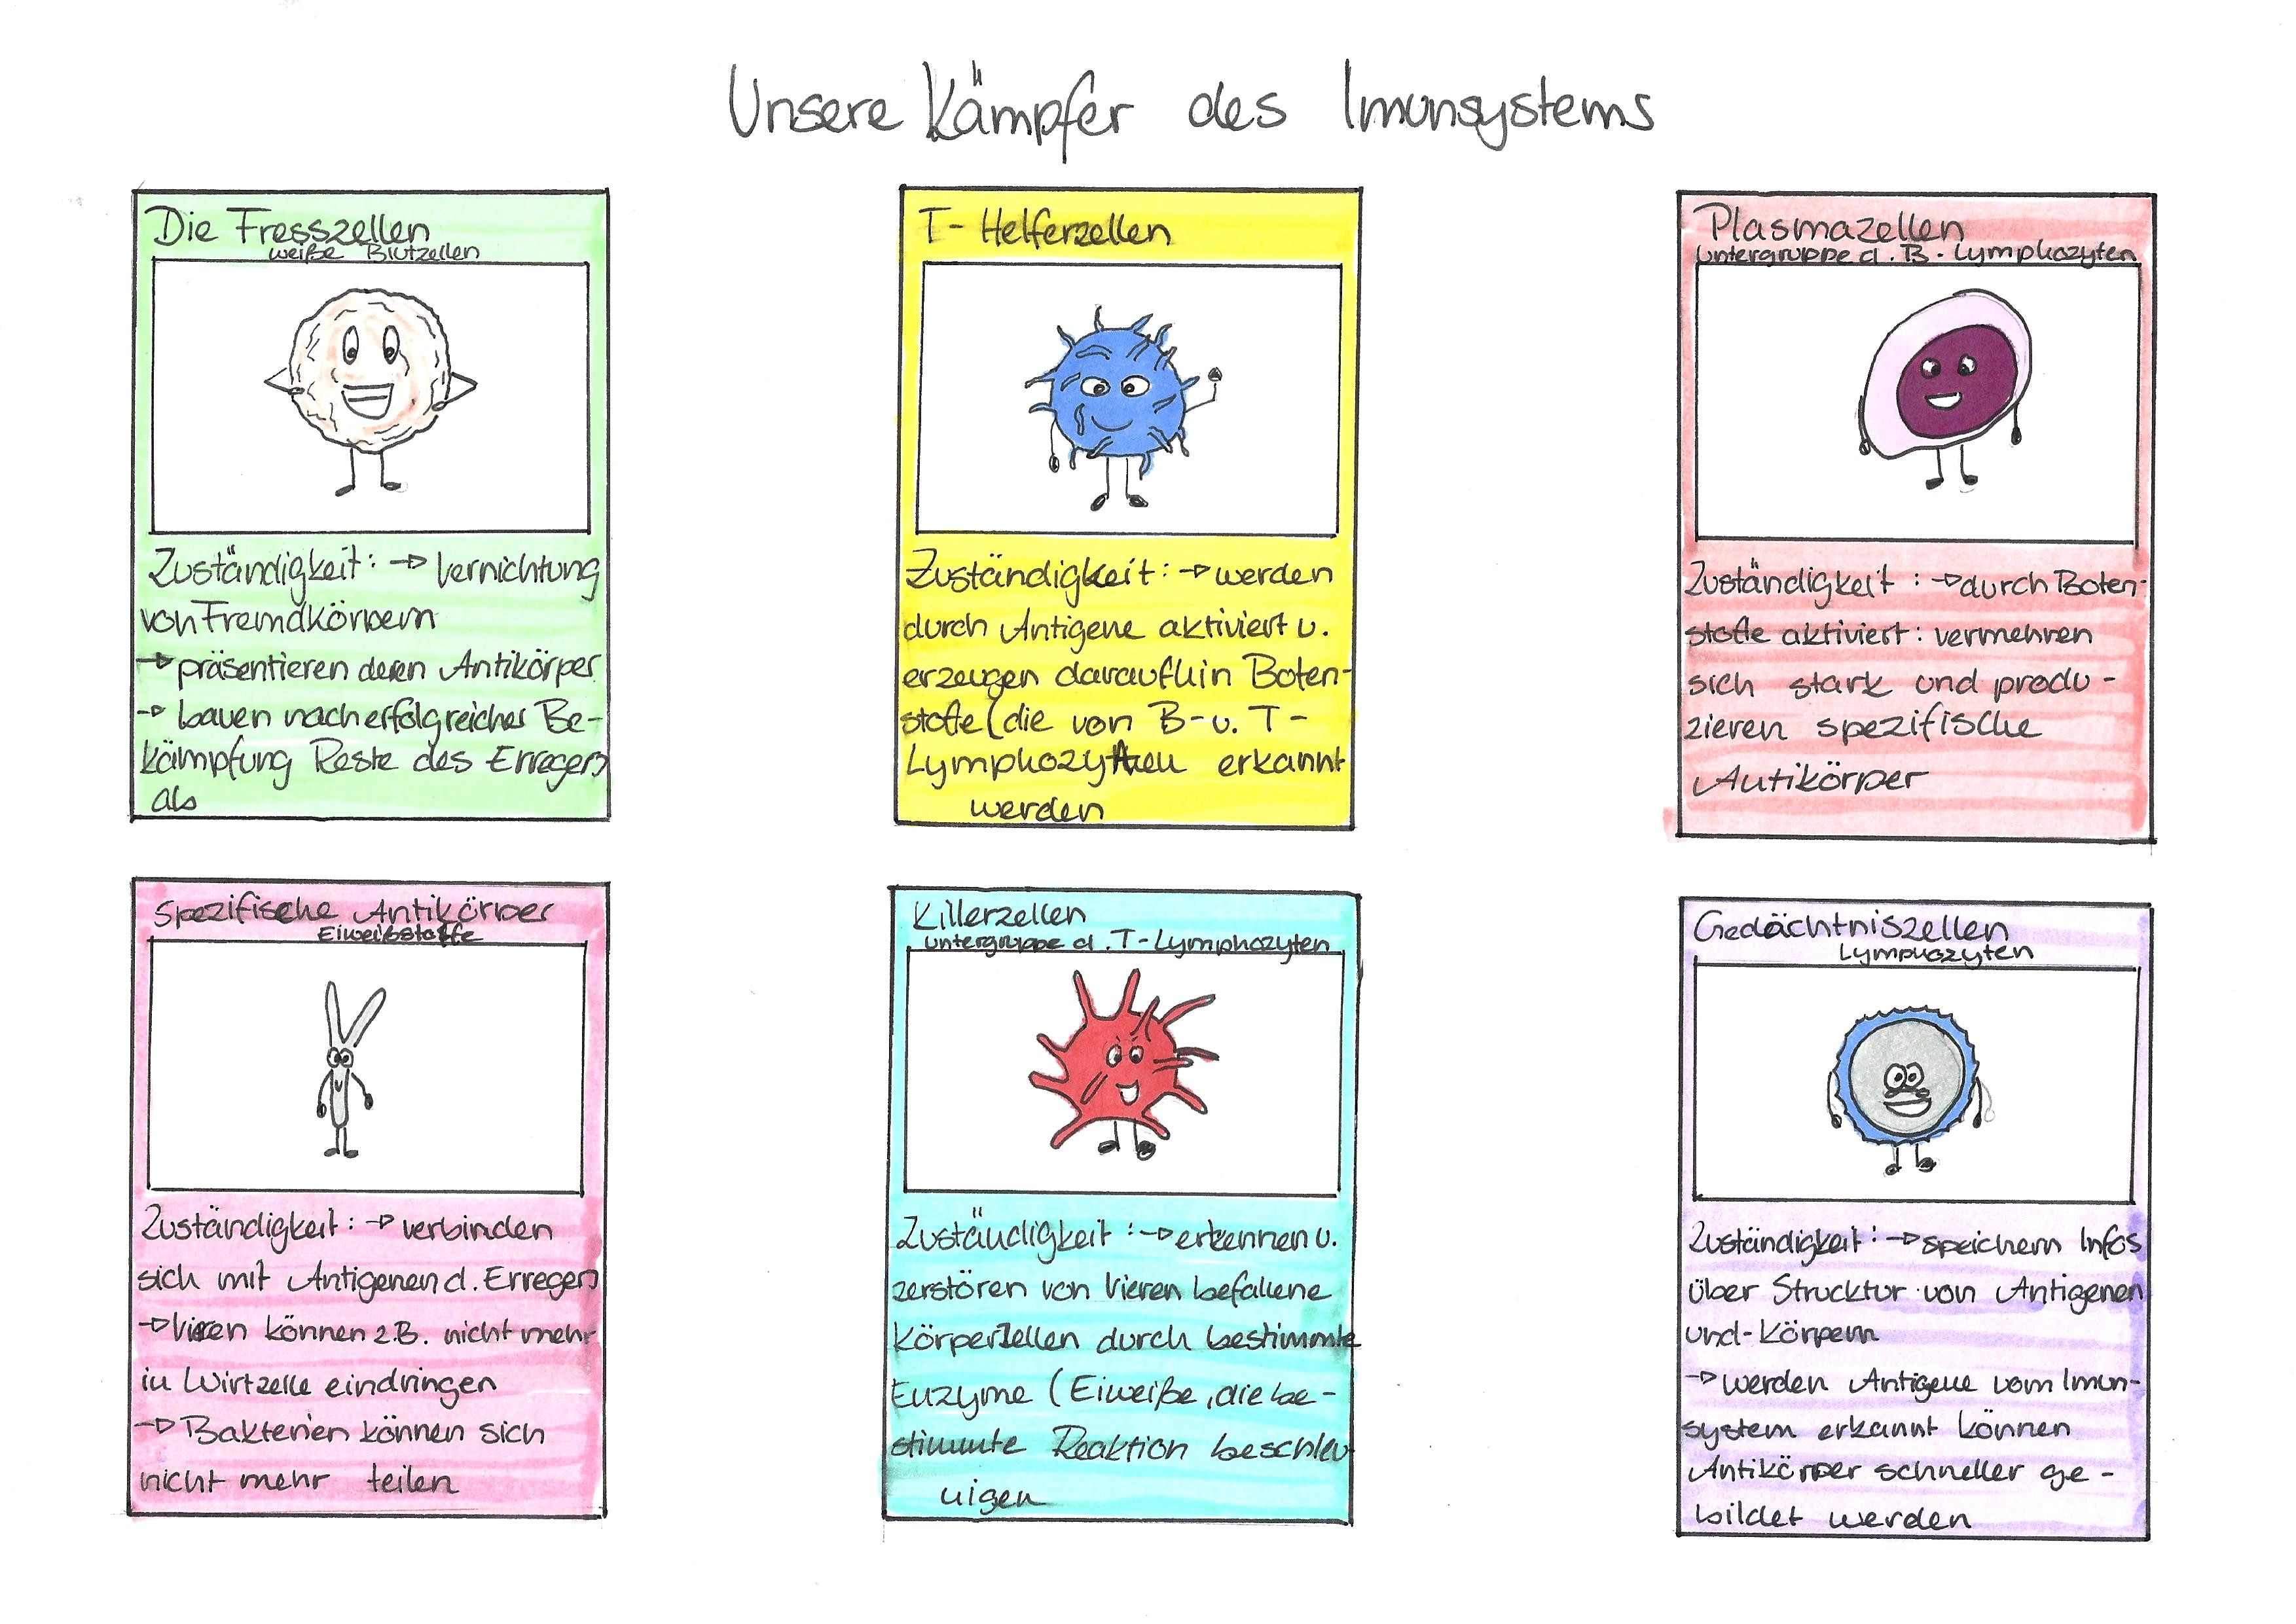 Unsere Kämpfer des Imunsystems
Die Fresszellen
weiße Blutzellen
Zuständigkeit: → Vernichtung
von Fremdkörpern
→ präsentieren deren Antikörper
→ bauen nach erfolgreicher Be-
kämpfung Reste des Erregers
ab
T-Helferzellen
Zuständigkeit: → werden
durch Antigene aktiviert u.
erzeugen daraufhin Boten-
stoffe (die von B- u. T-
Lymphozyten erkannt
werden
Plasmazellen
Untergruppe d. B-Lymphozyten
Zuständigkeit: → durch Boten-
stoffe aktiviert: vermehren
sich stark und produ-
zieren spezifische
Antikörper
Spezifische Antikörper
Eiweißstoffe
Zuständigkeit: → verbinden
sich mit Antigenen d. Erregers
→ Viren können z.B. nicht mehr
in Wirtzelle eindringen
→ Bakterien können sich
nicht mehr teilen
Killerzellen
Untergruppe d. T-Lymphozyten
Zuständigkeit: → erkennen u.
zerstören von Vieren befallene
Körperzellen durch bestimmte
Enzyme (Eiweiße, die be-
stimmte Reaktion beschleu-
nigen
Gedächtniszellen
Lymphozyten
Zuständigkeit: → speichern Infos
über Strucktur von Antigenen
und -Körpern
→ werden Antigene vom Imun-
system erkannt können
Antikörper schneller ge-
bildet werden